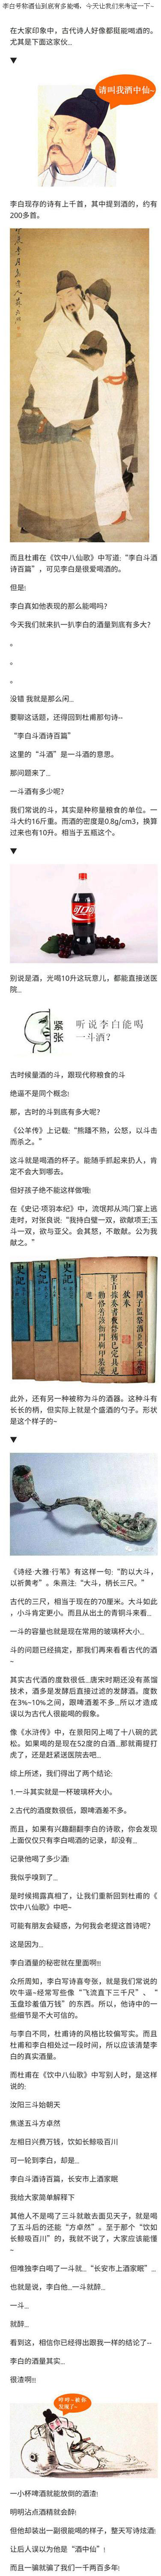 李白号称酒仙到底有多能喝，今天让我们来考证一下~
在大家印象中，古代诗人好像都挺能喝酒的。
尤其是下面这家伙...
▼
请叫我酒中仙~
李白现存的诗有上千首，其中提到酒的，约有
200多首。
而且杜甫在《饮中八仙歌》中写道:“李白斗酒
诗百篇”，可见李白是很爱喝酒的。
但是!
李白真如他表现的那么能喝吗?
今天我们就来扒一扒李白的酒量到底有多大?
。
。
。
没错 我就是那么闲...
要聊这话题，还得回到杜甫那句诗--
“李白斗酒诗百篇”
这里的“斗酒”是一斗酒的意思。
那问题来了...
一斗酒有多少呢?
我们常说的斗，其实是种称量粮食的单位。一
斗大约16斤重。而酒的密度是0.8g/cm3，换算
过来也有10升。相当于五瓶这个。
▼
可口可乐
别说是酒，光喝10升这玩意儿，都能直接送医
院...
紧张
听说李白能喝
一斗酒?
古时候量酒的斗，跟现代称粮食的斗
绝逼不是同个概念!
那，古时的斗到底有多大呢?
《公羊传》上记载:“熊蹯不熟，公怒，以斗击
而杀之。”
这斗就是喝酒的杯子。能随手抓起来扔人，肯
定不会大到哪去。
但好孩子绝不能这样做哦!
在《史记·项羽本纪》中，流氓邦从鸿门宴上逃
走时，对张良说:“我持白璧一双，欲献项王;玉
斗一双，欲与亚父。会其怒，不敢献。公为我
献之。”
史记
史记
此外，还有另一种被称为斗的酒器。这种斗有
长长的柄，但实际上就是个盛酒的勺子。形状
是这个样子的~
▼
《诗经·大雅·行苇》有这样一句:“酌以大斗，
以祈黄耇”。朱熹注:“大斗，柄长三尺。”
古代的三尺，相当于现在的70厘米。大斗如此
，小斗肯定更小。而且从出土的青铜斗来看...
一斗的容量也就是现在常用的玻璃杯大小...
斗的问题已经搞定，那我们再来看看古代的酒
~
其实古代酒的度数很低...唐宋时期还没有蒸馏
技术，酒多是发酵后直接过滤的发酵酒。度数
在3%~10%之间，跟啤酒差不多...所以才造成
误以为古代人很能喝的假象。
像《水浒传》中，在景阳冈上喝了十八碗的武
松。如果喝的是现在52度的白酒...那就甭提打
虎了，还是赶紧送医院去吧...
综上所述，我们得出了两个结论:
1.一斗其实就是一杯玻璃杯大小。
2.古代的酒度数很低，跟啤酒差不多。
而且，如果有兴趣翻翻李白的诗歌，你会发现
上面仅仅只有李白喝酒的记录，却没有...
记录他喝了多少酒!
我似乎嗅到了...
是时候揭露真相了，让我们重新回到杜甫的《
饮中八仙歌》中吧~
可能有朋友会疑惑，为何我会老提这首诗呢?
这是因为...
李白酒量的秘密就在里面啊!!!
众所周知，李白写诗喜夸张，就是我们常说的
吹牛逼~经常写些像“飞流直下三千尺”、“
玉盘珍羞值万钱”的东西。所以，他诗中的一
些细节是不大可信的。
与李白不同，杜甫诗的风格比较偏写实。而且
杜甫和李白相处过一段时间，所以应该清楚李
白的真实酒量。
而杜甫在《饮中八仙歌》中写别人时，是这样
说的:
汝阳三斗始朝天
焦遂五斗方卓然
左相日兴费万钱，饮如长鲸吸百川
可一轮到李白，却是...
李白斗酒诗百篇，长安市上酒家眠
我给大家简单解释下
其他人不是喝了三斗就敢去面见天子，就是喝
了五斗后的还能“方卓然”。至于那个“饮如
长鲸吸百川”的，我就不说了，大家应该能懂
~
但唯独李白喝了一斗就...“长安市上酒家眠”...
也就是说，李白他...一斗就醉...
一斗...
就醉...
看到这，相信你已经得出跟我一样的结论了--
李白的酒量其实...
很渣啊!!!
一小杯啤酒就能放倒的酒渣!
明明沾点酒精就会醉!
但他却装出一副很能喝的样子，整天写诗炫酒!
让后人误以为他是“酒中仙”!
而且一骗就骗了我们一千两百多年!